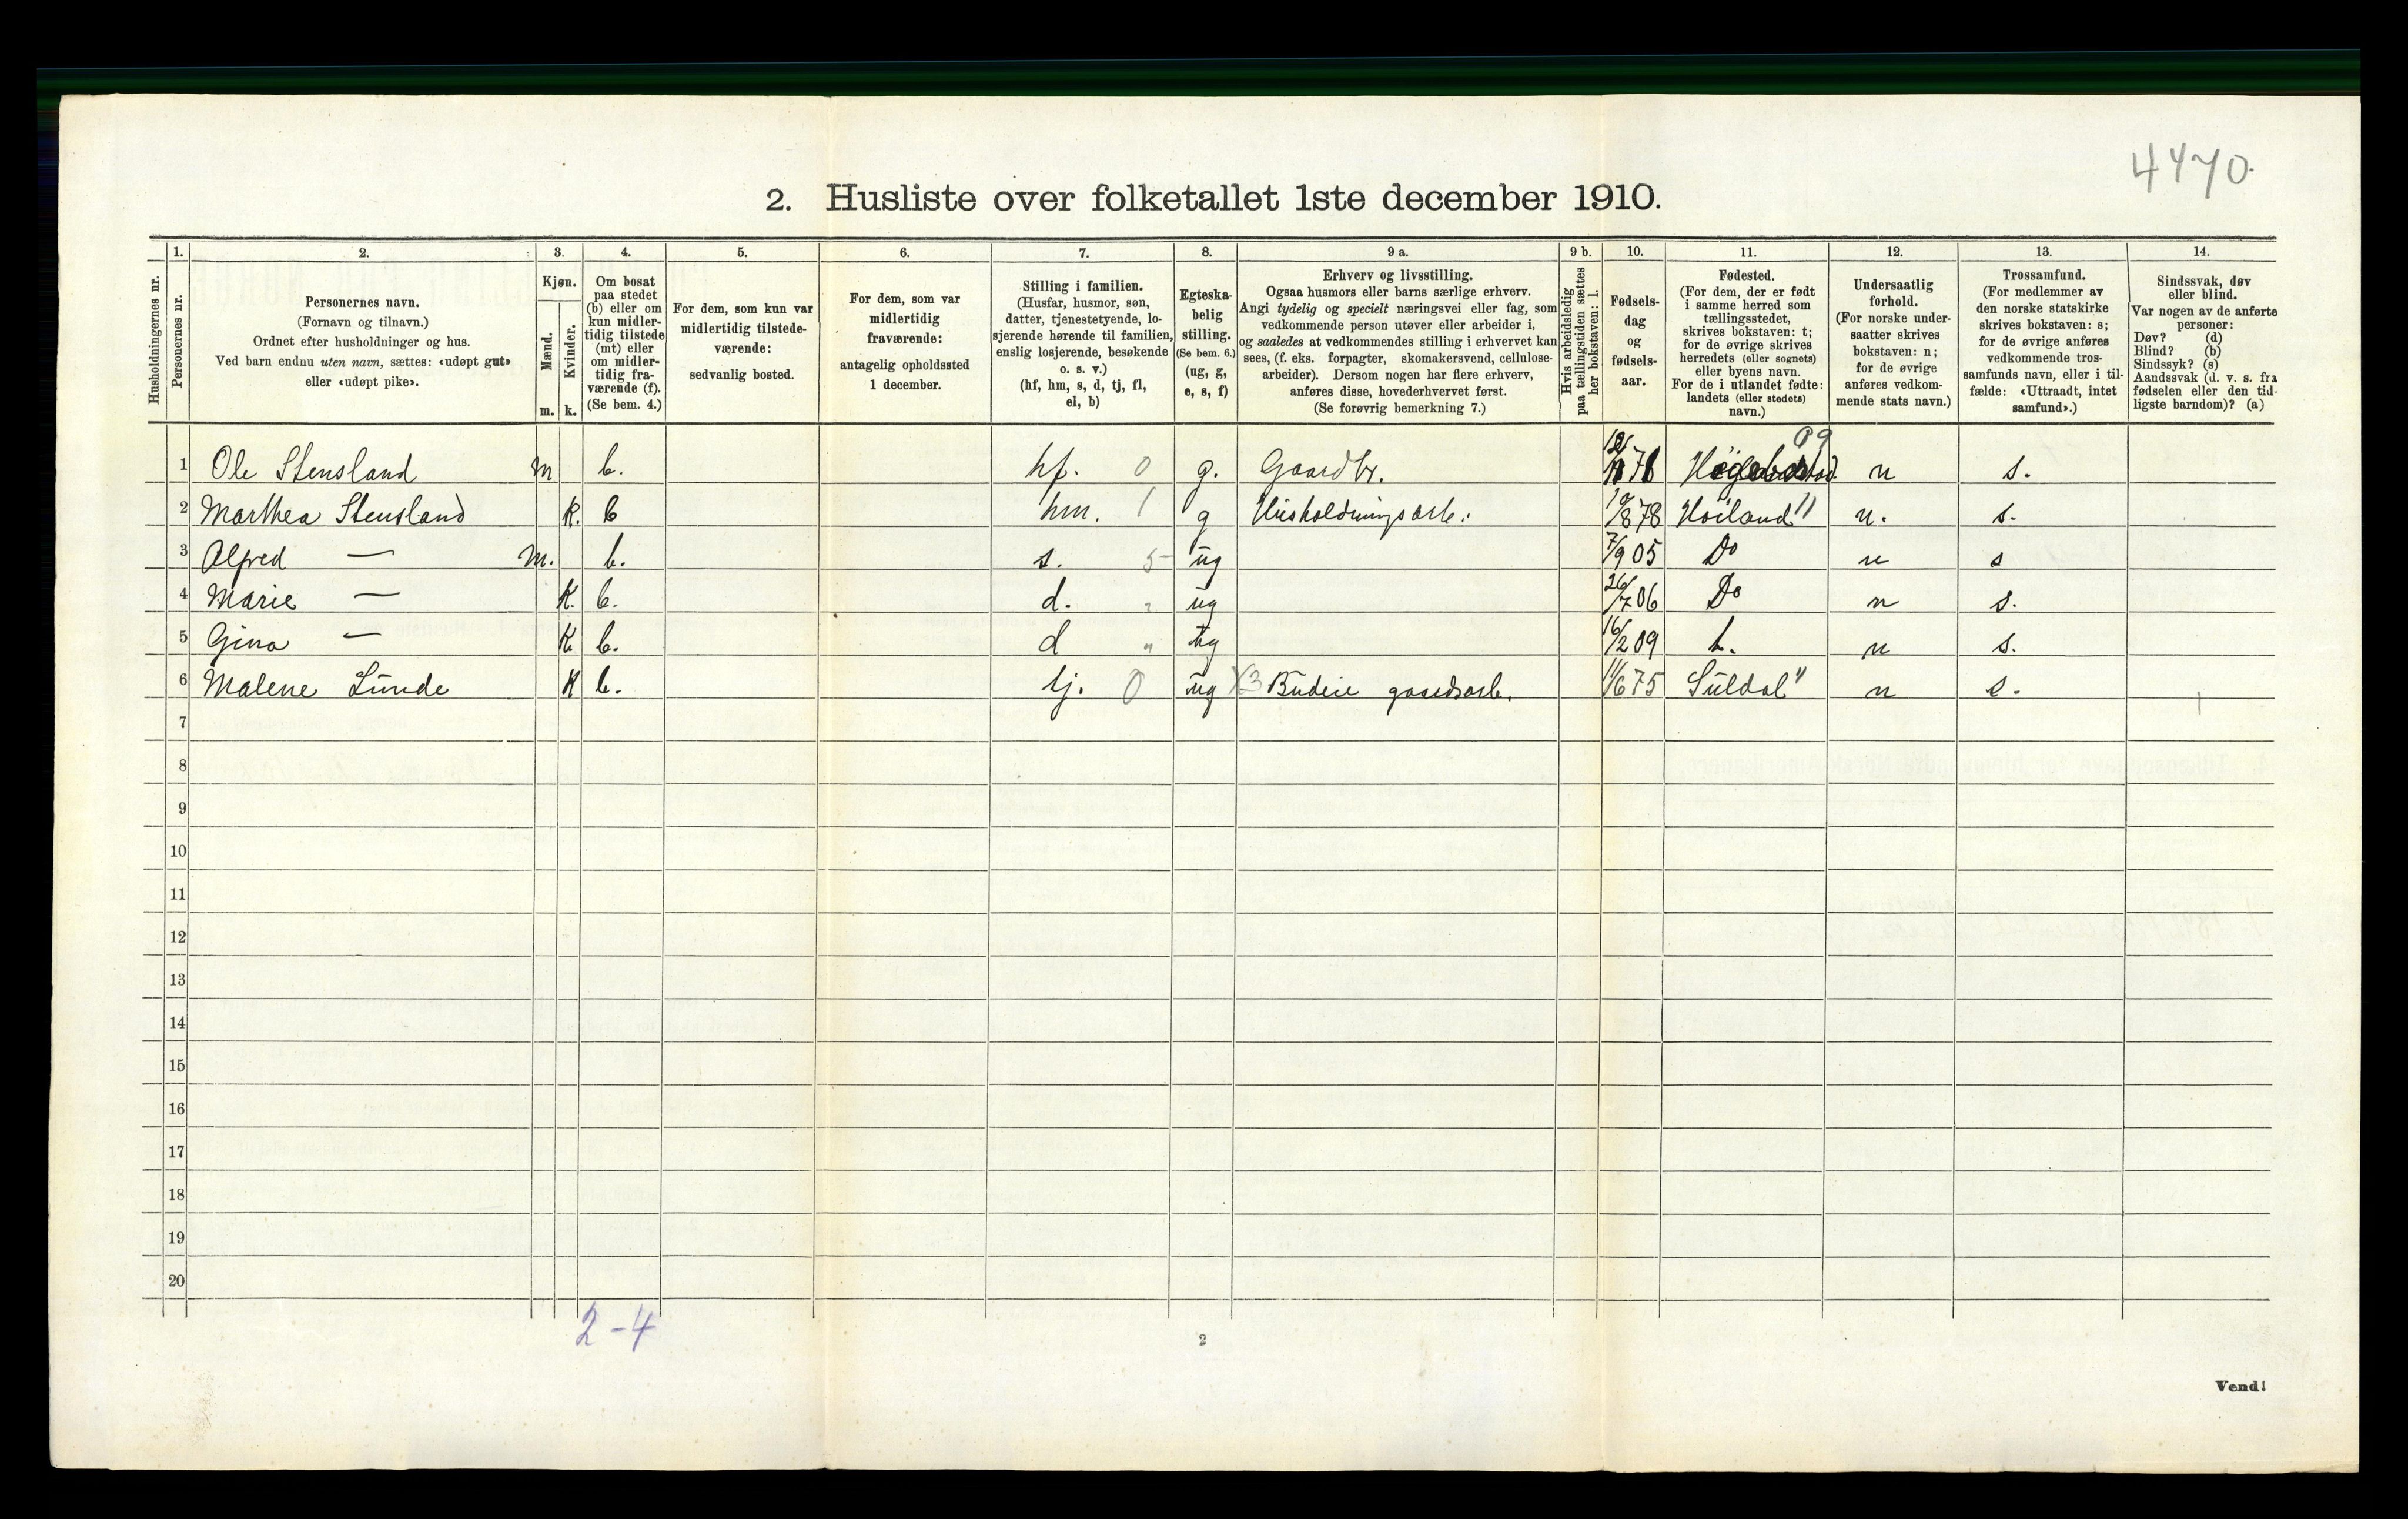 4470.
2. Husliste over folketallet 1ste december 1910.
Husholdningernes nr.
1. Personernes nr.
2. Personernes navn. (Fornavn og tilnavn.) Ordnet efter husholdninger og hus. Ved barn endnu uten navn, sættes: «udøpt gut» eller «udøpt pike».
3. Kjøn. Mænd. m. Kvinder. k.
4. Om bosat paa stedet (b) eller om kun midlertidig tilstede (mt) eller om midlertidig fraværende (f). (Se bem. 4.)
5. For dem, som kun var midlertidig tilstedeværende: sedvanlig bosted.
6. For dem, som var midlertidig fraværende: antagelig opholdssted 1 december.
7. Stilling i familien. (Husfar, husmor, søn, datter, tjenestetyende, losjerende hørende til familien, enslig losjerende, besøkende o. s. v.) (hf, hm, s, d, tj, fl, el, b)
8. Egteskabelig stilling. (Se bem. 6.) (ug, g, e, s, f)
9 a. Erhverv og livsstilling. Ogsaa husmors eller barns særlige erhverv. Angi tydelig og specielt næringsvei eller fag, som vedkommende person utøver eller arbeider i, og saaledes at vedkommendes stilling i erhvervet kan sees, (f. eks. forpagter, skomakersvend, cellulosearbeider). Dersom nogen har flere erhverv, anføres disse, hovederhvervet først. (Se forøvrig bemerkning 7.)
9 b. Hvis arbeidsledig paa tællingstiden sættes her bokstaven: l.
10. Fødselsdag og fødselsaar.
11. Fødested. (For dem, der er født i samme herred som tællingsstedet, skrives bokstaven: t; for de øvrige skrives herredets (eller sognets) eller byens navn. For de i utlandet fødte: landets (eller stedets) navn.)
12. Undersaatlig forhold. (For norske undersaatter skrives bokstaven: n; for de øvrige anføres vedkommende stats navn.)
13. Trossamfund. (For medlemmer av den norske statskirke skrives bokstaven: s; for de øvrige anføres vedkommende trossamfunds navn, eller i tilfælde: «Uttraadt, intet samfund».)
14. Sindssvak, døv eller blind. Var nogen av de anførte personer: Døv? (d) Blind? (b) Sindssyk? (s) Aandssvak (d. v. s. fra fødselen eller den tidligste barndom)? (a)
1 Ole Stensland m b. hf. 0 g. Gaardbr. 09 n s.
2 Marthea Stensland k. b hm. 1 g Husholdningsarb. 19/8 78 Höiland " n. s.
3 Alfred — m. b. s. 5 ug 7/9 05 Do n s
4 Marie — k. b. d. " ug 26/7 06 Do n s.
5 Gina — k. b. d " ug 16/2 09 t. n s.
6 Malene Lunde k b. tj. 0 ug X3 Budeie gaardsarb. 11/6 75 Suldal " n s. 1
7
8
9
10
11
12
13
14
15
16
17
18
19
20
2-4
2
Vend!